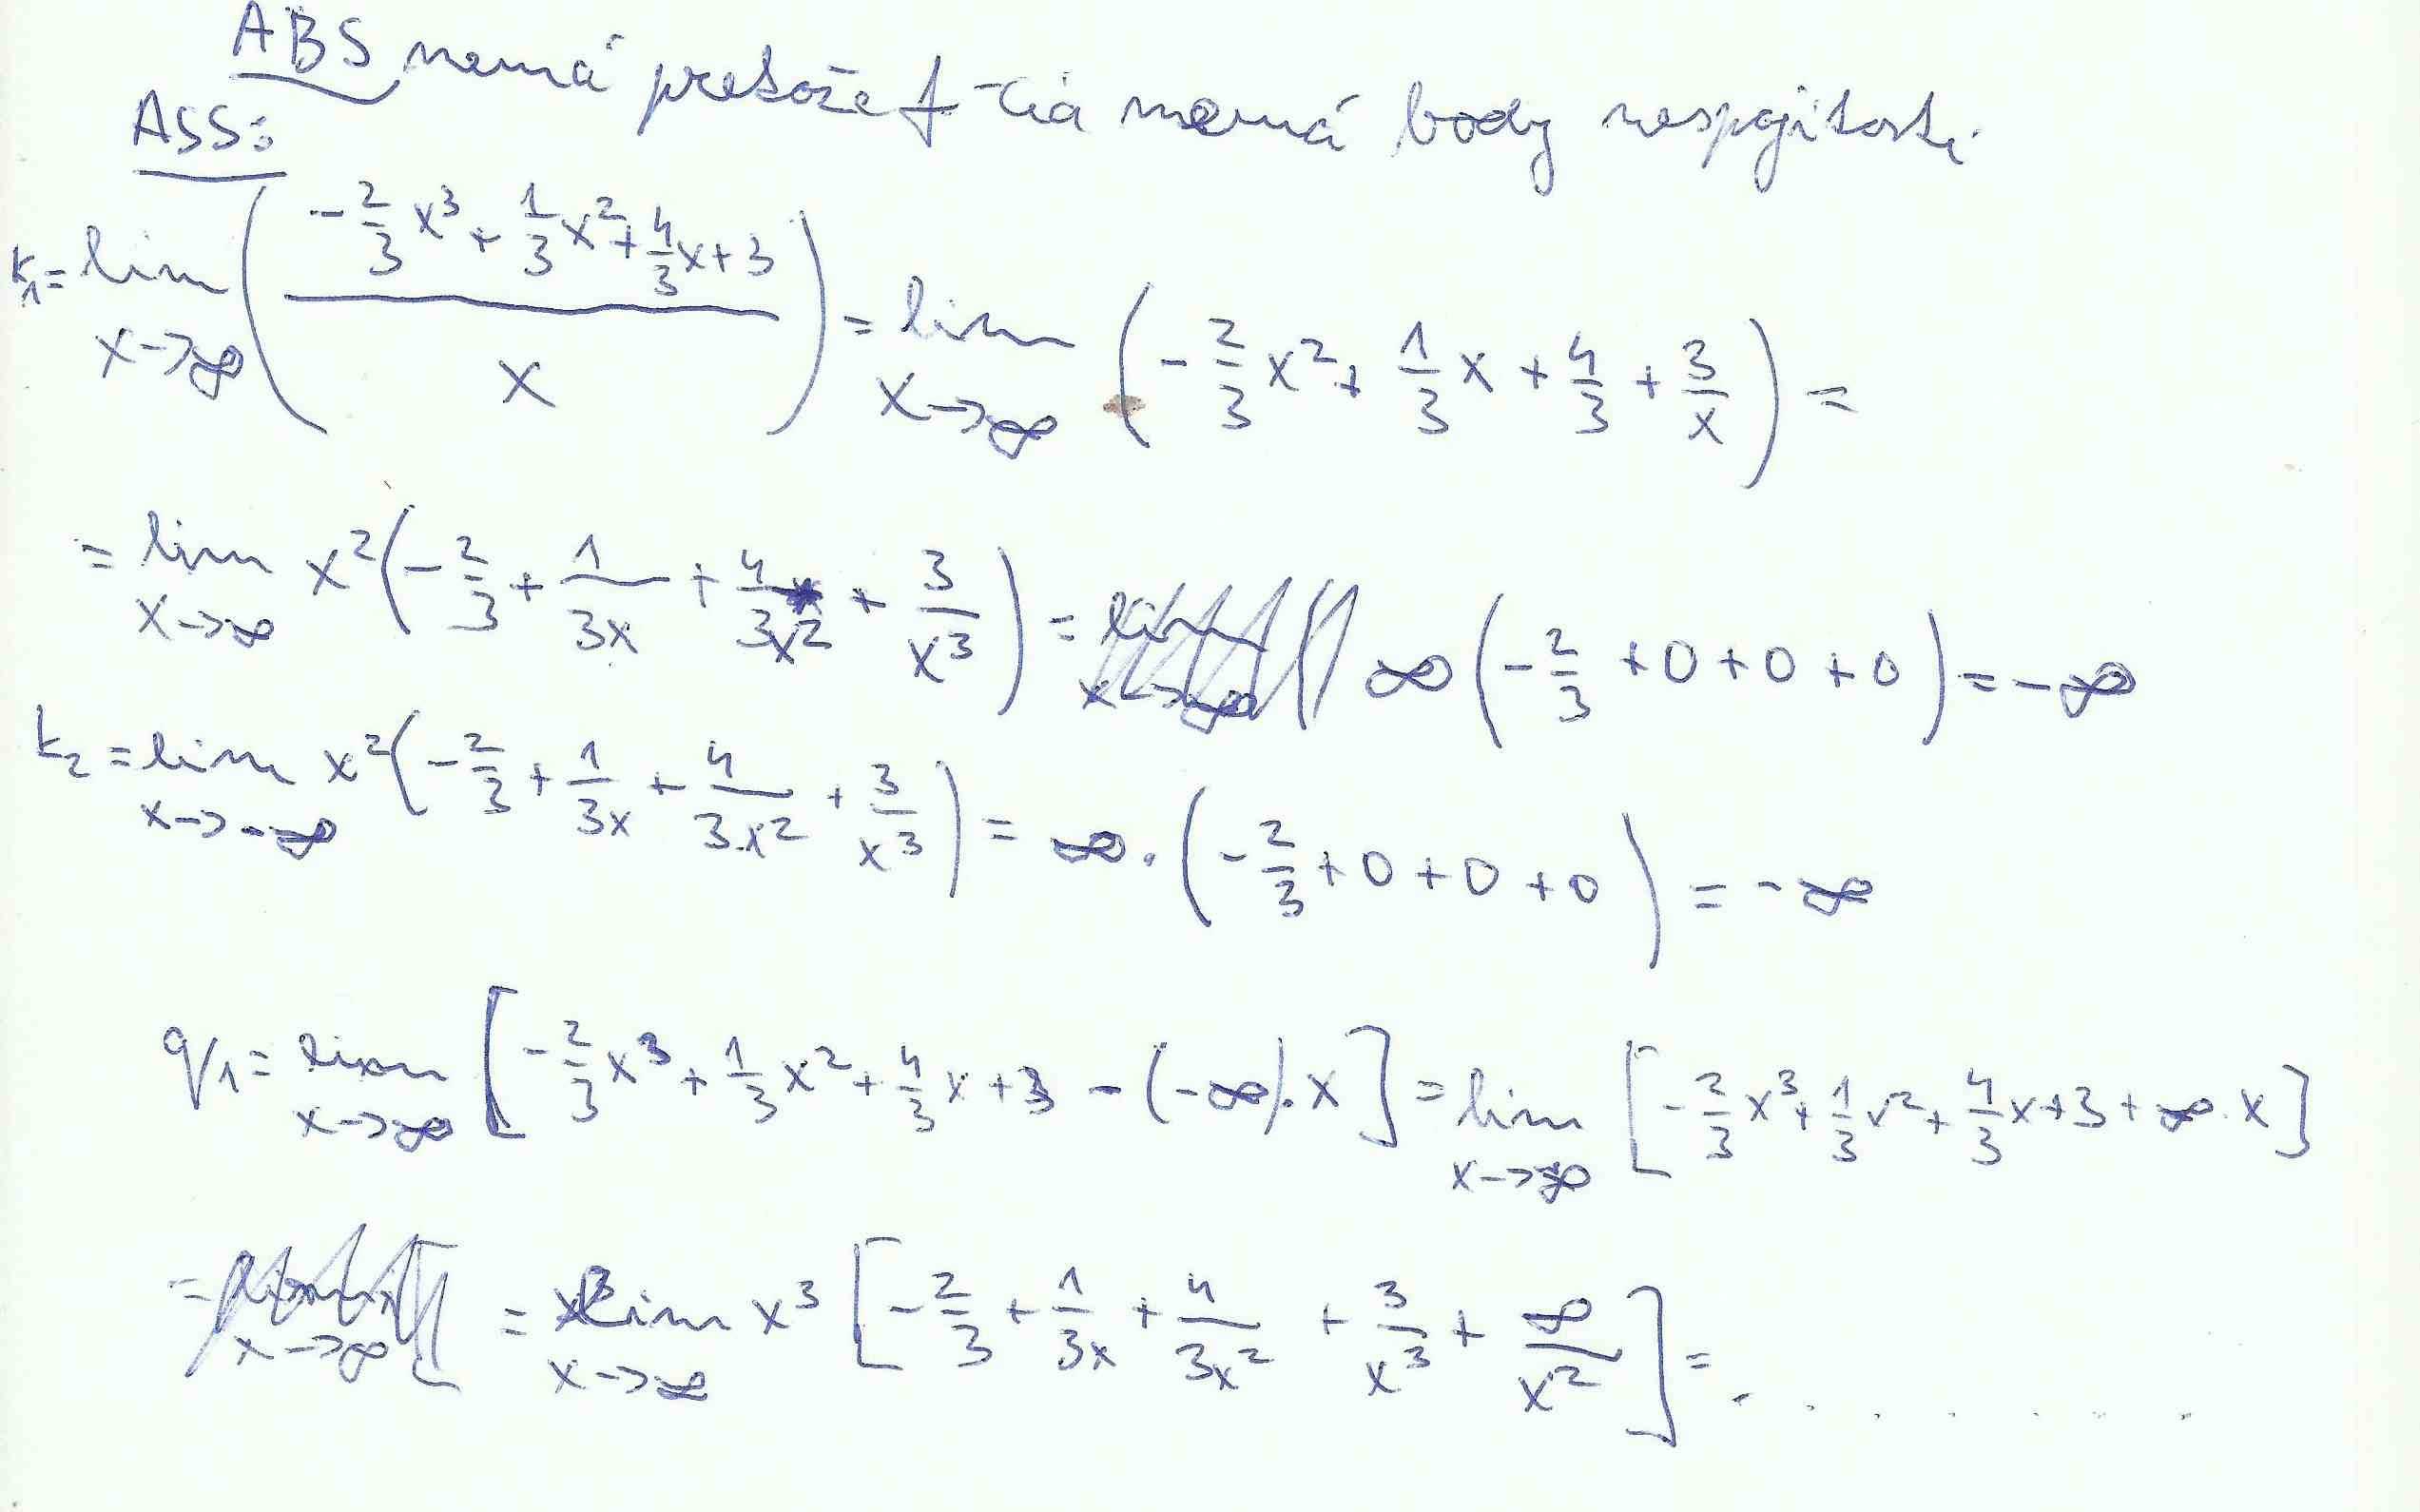 ABS nemá pretože f-cia nemá body nespojitosti.
ASS:
k₁ = lim x→∞ ( (-2/3 x³ + 1/3 x² + 4/3 x + 3) / x ) = lim x→∞ ( -2/3 x² + 1/3 x + 4/3 + 3/x ) =
= lim x→∞ x² ( -2/3 + 1/3x + 4/3x² + 3/x³ ) = ∞ ( -2/3 + 0 + 0 + 0 ) = -∞
k₂ = lim x→-∞ x² ( -2/3 + 1/3x + 4/3x² + 3/x³ ) = ∞ · ( -2/3 + 0 + 0 + 0 ) = -∞
q₁ = lim x→∞ [ -2/3 x³ + 1/3 x² + 4/3 x + 3 - (-∞) · x ] = lim x→∞ [ -2/3 x³ + 1/3 x² + 4/3 x + 3 + ∞ · x ]
= lim x→∞ x³ [ -2/3 + 1/3x + 4/3x² + 3/x³ + ∞/x² ] = . . . . . . .